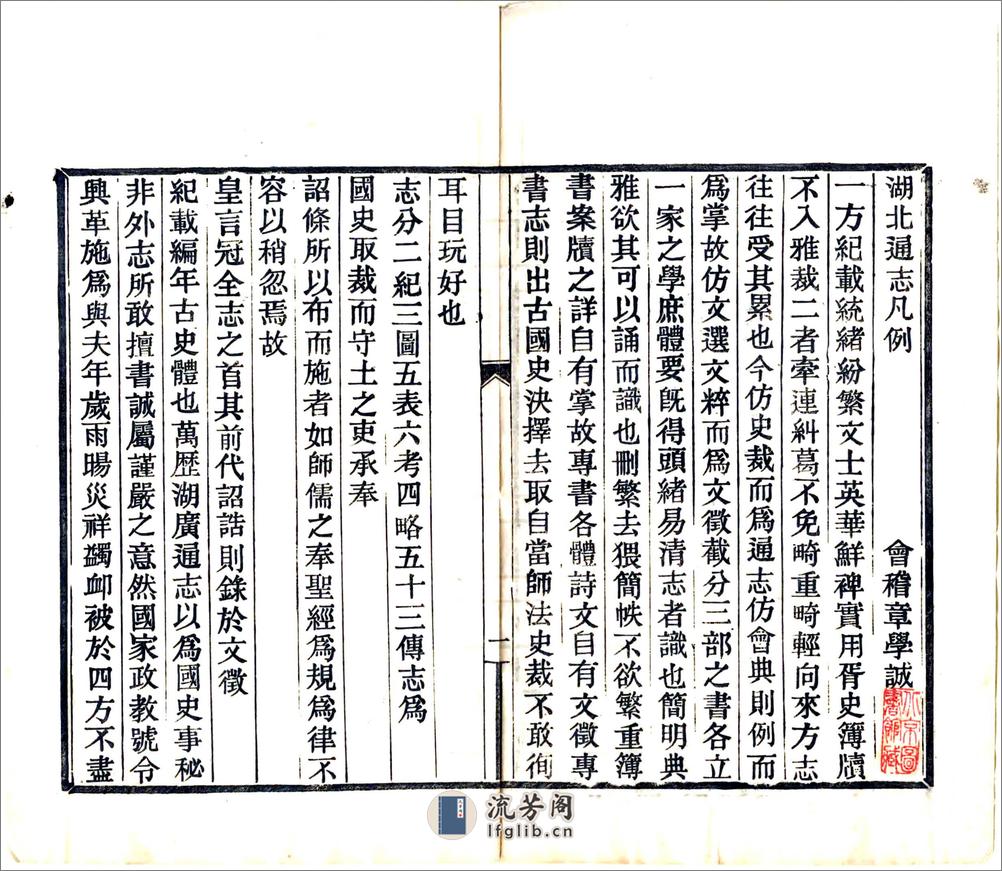 湖北通志凡例 會稽章學誠
一方紀載統緒紛繁文士英華鮮裨實用胥史簿牘
不入雅裁二者牽連糾葛不免畸重畸輕向來方志
往往受其累也今仿史裁而爲通志仿會典則例而
爲掌故仿文選文粹而爲文徵截分三部之書各立
一家之學庶體要旣得頭緒易清志者識也簡明典
雅欲其可以誦而識也刪繁去猥簡帙不欲繁重簿
書案牘之詳自有掌故專書各體詩文自有文徵專
書志則出古國史決擇去取自當師法史裁不敢徇
耳目玩好也
志分二紀三圖五表六考四略五十三傳志爲
國史取裁而守土之吏承奉
詔條所以布而施者如師儒之奉聖經爲規爲律不
容以稍忽焉故
皇言冠全志之首其前代詔誥則錄於文徵
紀載編年古史體也萬歷湖廣通志以爲國史事秘
非外志所敢擅書誠屬謹嚴之意然國家政教號令
興革施爲與夫年歲雨暘災祥蠲卹被於四方不盡
一
北京圖書館藏
流芳阁
lfglib.cn